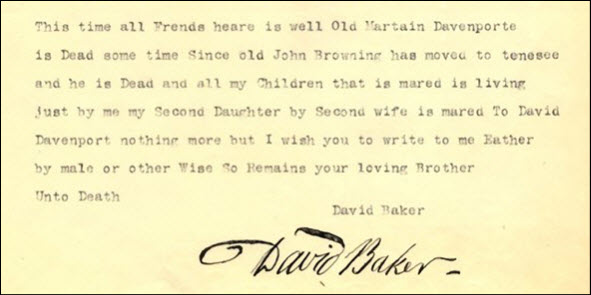 This time all Frends heare is well Old Martain Davenporte
is Dead some time Since old John Browning has moved to tenesee
and he is Dead and all my Children that is mared is living
just by me my Second Daughter by Second wife is mared To David
Davenport nothing more but I wish you to write to me Eather
by male or other Wise So Remains your loving Brother
Unto Death
David Baker
David Baker